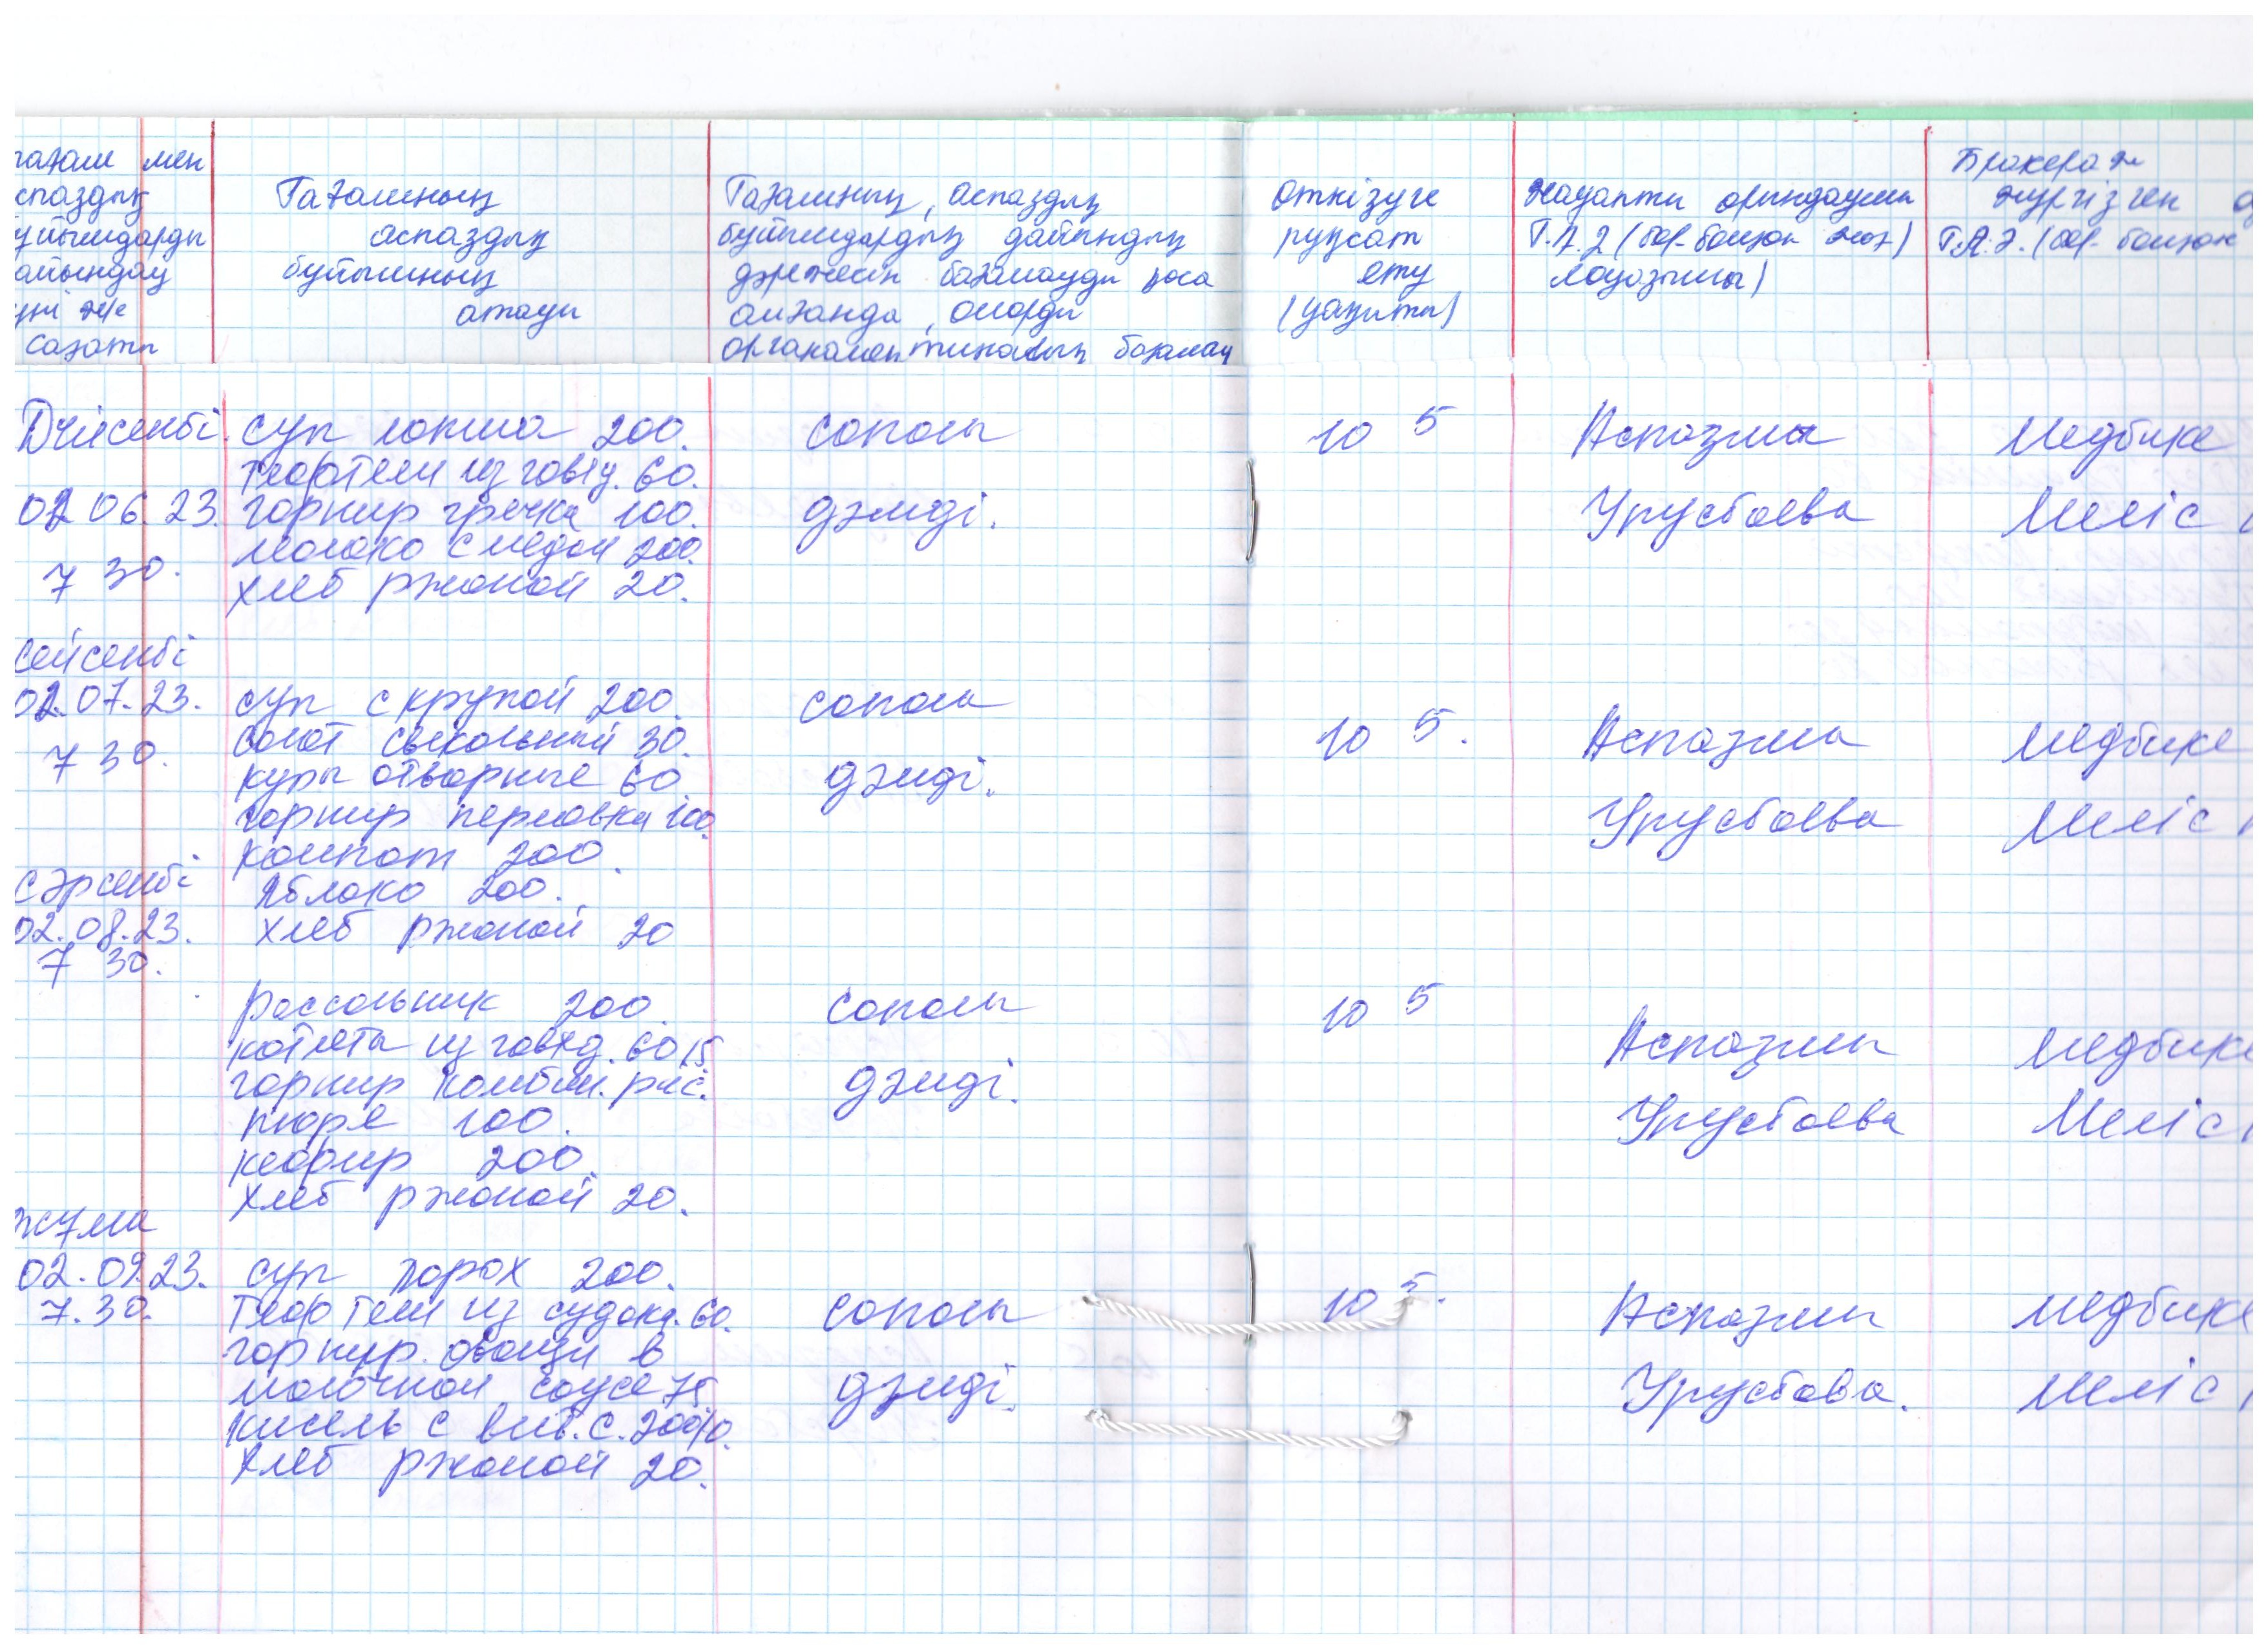 тағам мен
спаздық
ұйымдарды
айындау
үні және
сағаты
Тағамның
аспаздық
бұйымның
атауы
Тағамның, аспаздық
бұйымдардың дайындық
дәрежесін бағалауды қоса
алғанда, оларды
органолептикалық бағалау
Өткізуге
рұқсат
ету
(уақыты)
Жауапты орындаушы
Т.А.Ә (бар болған жағ)
лауазымы)
Бракераж
жүргізген
Т.А.Ә. (бар болған
Дүйсенбі
02 06. 23.
7 30.
суп лапша 200.
тефтели из говяд. 60.
гарнир гречка 100.
молоко с медом 200.
хлеб ржаной 20.
сапалы
дәмді.
10 5
Аспазшы
Урусбаева
Медбике
Меліс
сейсенбі
02.07.23.
7 30.
суп с крупой 200.
салат свекольный 30.
куры отварные 60.
гарнир перловка 100.
компот 200.
яблоко 200.
хлеб ржаной 20
сапалы
дәмді.
10 5.
Аспазшы
Урусбаева
медбике
Меліс
сәрсенбі
02.08.23.
7 30.
рассольник 200.
котлеты из говяд. 60/5
гарнир комбин. рис.
пюре 100.
кефир 200.
хлеб ржаной 20.
сапалы
дәмді.
10 5
Аспазшы
Урусбаева
медбике
Меліс
жұма
02.09.23.
7.30.
суп горох 200.
Тефтели из судака. 60.
гарнир. овощи в
молочном соусе 75
кисель с вит. С. 200/0.
хлеб ржаной 20.
сапалы
дәмді.
10 5.
Аспазшы
Урусбава.
медбике
Меліс